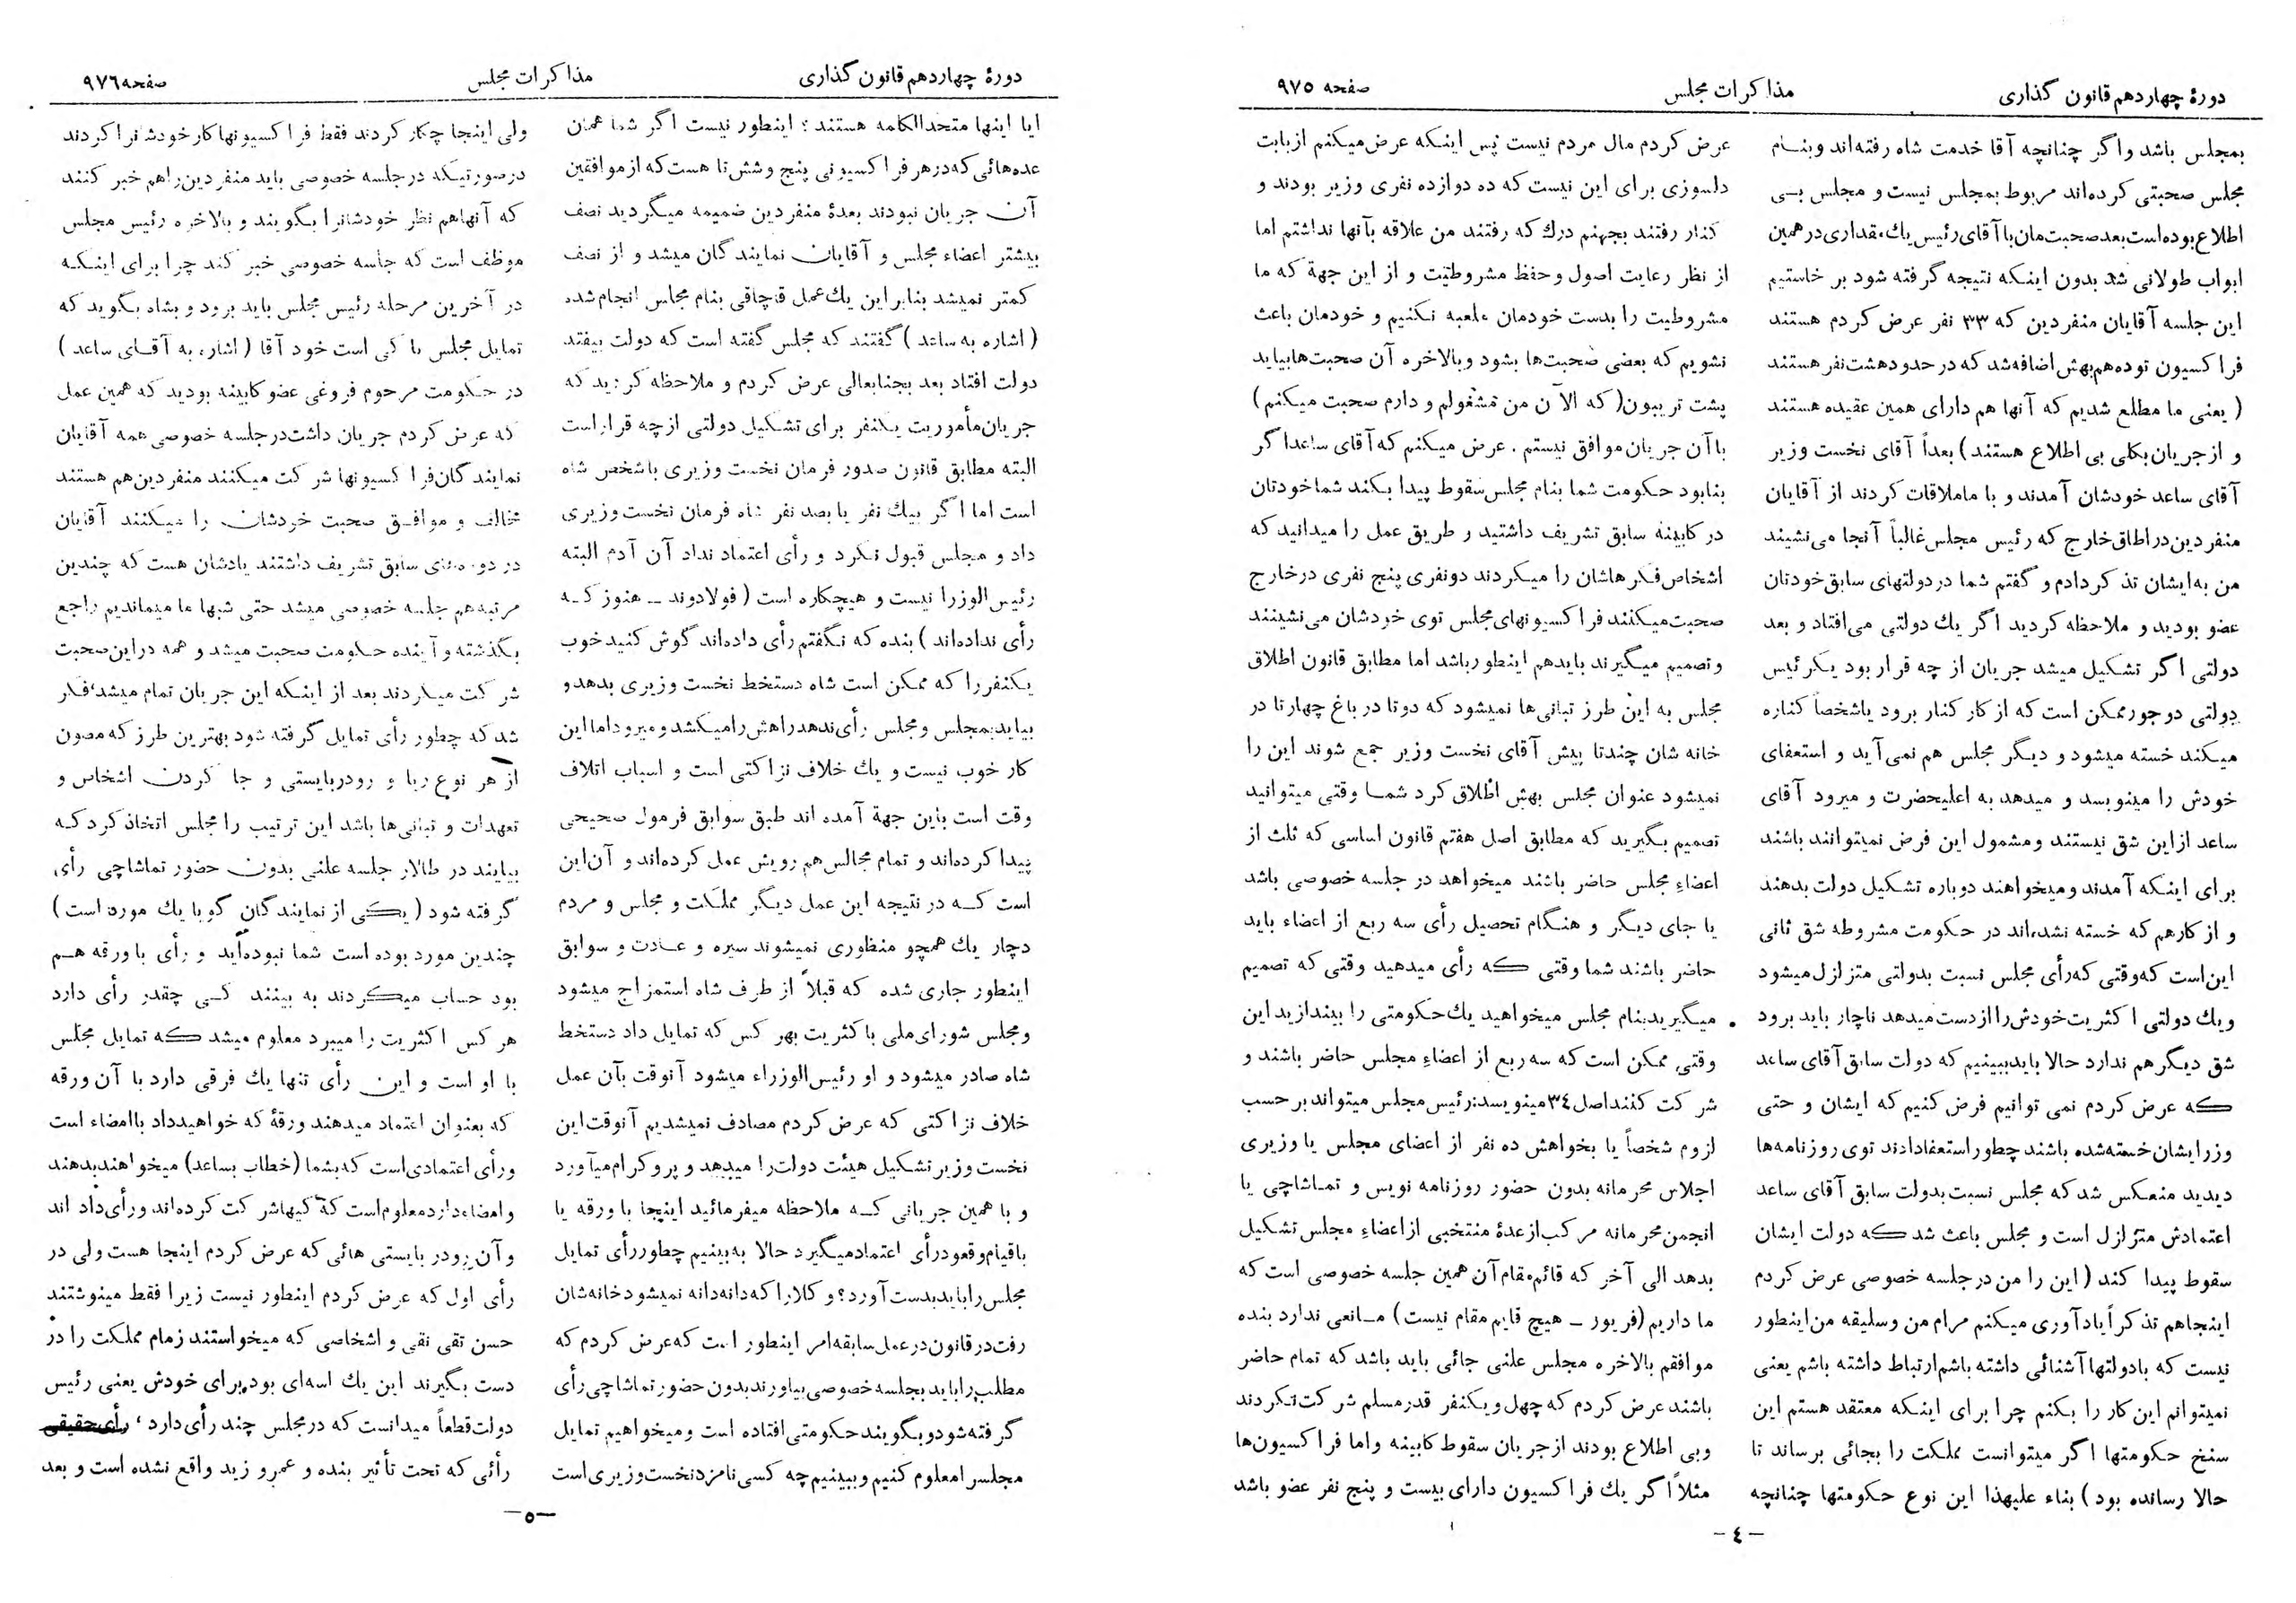 دورهٔ چهاردهم قانون گذاری
مذاکرات مجلس
صفحه ۹۷۵
بمجلس باشد واگر چنانچه آقا خدمت شاه رفته‌اند وبنام
مجلس صحبتی کرده‌اند مربوط بمجلس نیست و مجلس بی
اطلاع بوده است بعد صحبت‌مان با آقای رئیس یك مقداری در همین
ابواب طولانی شد بدون اینکه نتیجه گرفته شود بر خاستیم
این جلسه آقایان منفردین که ۳۳ نفر عرض کردم هستند
فراکسیون توده هم بهش اضافه شد که در حدود هشت نفر هستند
( یعنی ما مطلع شدیم که آنها هم دارای همین عقیده هستند
و از جریان بکلی بی اطلاع هستند ) بعداً آقای نخست وزیر
آقای ساعد خودشان آمدند و با ما ملاقات کردند از آقایان
منفردین در اطاق خارج که رئیس مجلس غالباً آنجا می‌نشیند
من به‌ایشان تذکر دادم و گفتم شما در دولتهای سابق خودتان
عضو بودید و ملاحظه کردید اگر یك دولتی می‌افتاد و بعد
دولتی اگر تشکیل میشد جریان از چه قرار بود یکرئیس
دولتی دو جور ممکن است که از کار کنار برود یا شخصاً کناره
میکند خسته میشود و دیگر مجلس هم نمی‌آید و استعفای
خودش را مینویسد و میدهد به اعلیحضرت و میرود آقای
ساعد از این شق نیستند و مشمول این فرض نمیتوانند باشند
برای اینکه آمدند و میخواهند دوباره تشکیل دولت بدهند
و از کارهم که خسته نشده‌اند در حکومت مشروطه شق ثانی
این است که وقتی که رأی مجلس نسبت بدولتی متزلزل میشود
و یك دولتی اکثریت خودش را از دست میدهد ناچار باید برود
شق دیگر هم ندارد حالا باید ببینیم که دولت سابق آقای ساعد
که عرض کردم نمی توانیم فرض کنیم که ایشان و حتی
وزرایشان خسته شده باشند چطور استعفا دادند توی روزنامه‌ها
دیدید منعکس شد که مجلس نسبت بدولت سابق آقای ساعد
اعتمادش متزلزل است و مجلس باعث شد که دولت ایشان
سقوط پیدا کند ( این را من در جلسه خصوصی عرض کردم
اینجا هم تذکراً یادآوری میکنم مرام من وسلیقه من اینطور
نیست که با دولتها آشنائی داشته باشم ارتباط داشته باشم یعنی
نمیتوانم این کار را بکنم چرا برای اینکه معتقد هستم این
سنخ حکومتها اگر میتوانست مملکت را بجائی برساند تا
حالا رسانده بود ) بناء علیهذا این نوع حکومتها چنانچه
عرض کردم مال مردم نیست پس اینکه عرض میکنم از بابت
دلسوزی برای این نیست که ده دوازده نفری وزیر بودند و
کنار رفتند بجهنم درك که رفتند من علاقه بآنها نداشتم اما
از نظر رعایت اصول و حفظ مشروطیت و از این جهة که ما
مشروطیت را بدست خودمان ملعبه نکنیم و خودمان باعث
نشویم که بعضی صحبت‌ها بشود و بالاخره آن صحبت‌ها بیاید
پشت تریبون ( که الآن من مشغولم و دارم صحبت میکنم )
با آن جریان موافق نیستم . عرض میکنم که آقای ساعد اگر
بنا بود حکومت شما بنام مجلس سقوط پیدا بکند شما خودتان
در کابینهٔ سابق تشریف داشتید و طریق عمل را میدانید که
اشخاص فکرهاشان را میکردند دونفری پنج نفری در خارج
صحبت میکنند فراکسیونهای مجلس توی خودشان می‌نشینند
و تصمیم میگیرند باید هم اینطور باشد اما مطابق قانون اطلاق
مجلس به این طرز تبانی‌ها نمیشود که دو تا در باغ چهارتا در
خانه شان چندتا پیش آقای نخست وزیر جمع شوند این را
نمیشود عنوان مجلس بهش اطلاق کرد شما وقتی میتوانید
تصمیم بگیرید که مطابق اصل هفتم قانون اساسی که ثلث از
اعضاء مجلس حاضر باشند میخواهد در جلسه خصوصی باشد
یا جای دیگر و هنگام تحصیل رأی سه ربع از اعضاء باید
حاضر باشند شما وقتی که رأی میدهید وقتی که تصمیم
میگیرید بنام مجلس میخواهید یك حکومتی را بیندازید این
وقتی ممکن است که سه ربع از اعضاء مجلس حاضر باشند و
شرکت کنند اصل ۳٤ مینویسد: رئیس مجلس میتواند بر حسب
لزوم شخصاً یا بخواهش ده نفر از اعضای مجلس یا وزیری
اجلاس محرمانه بدون حضور روزنامه نویس و تماشاچی یا
انجمن محرمانه مرکب از عدهٔ منتخبی از اعضاء مجلس تشکیل
بدهد الی آخر که قائم مقام آن همین جلسه خصوصی است که
ما داریم (فریور ــ هیچ قایم مقام نیست) مانعی ندارد بنده
موافقم بالاخره مجلس علنی جائی باید باشد که تمام حاضر
باشند عرض کردم که چهل و یکنفر قدر مسلم شرکت نکردند
و بی اطلاع بودند از جریان سقوط کابینه و اما فراکسیون‌ها
مثلاً اگر یك فراکسیون دارای بیست و پنج نفر عضو باشد
– ٤ –
دورهٔ چهاردهم قانون گذاری
مذاکرات مجلس
صفحه ۹۷٦
آیا اینها متحدالکلمه هستند ؛ اینطور نیست اگر شما همان
عده‌هائی که در هر فراکسیونی پنج و شش تا هست که از موافقین
آن جریان نبودند بعدهٔ منفردین ضمیمه میکردید نصف
بیشتر اعضاء مجلس و آقایان نمایندگان میشد و از نصف
کمتر نمیشد بنابراین یك عمل قاچاقی بنام مجلس انجام شده
( اشاره به ساعد ) گفتند که مجلس گفته است که دولت بیفتد
دولت افتاد بعد بجنابعالی عرض کردم و ملاحظه کردید که
جریان مأموریت یکنفر برای تشکیل دولتی از چه قرار است
البته مطابق قانون صدور فرمان نخست وزیری با شخص شاه
است اما اگر بیك نفر یا بصد نفر شاه فرمان نخست وزیری
داد و مجلس قبول نکرد و رأی اعتماد نداد آن آدم البته
رئیس‌الوزرا نیست و هیچکاره است ( فولادوند ــ هنوز که
رأی نداده‌اند ) بنده که نگفتم رأی داده‌اند گوش کنید خوب
یکنفر را که ممکن است شاه دستخط نخست وزیری بدهد و
بیاید بمجلس و مجلس رأی ندهد راهش را میکشد و میرود اما این
کار خوب نیست و یك خلاف نزاکتی است و اسباب اتلاف
وقت است باین جهة آمده اند طبق سوابق فرمول صحیحی
پیدا کرده‌اند و تمام مجالس هم رویش عمل کرده‌اند و آن این
است که در نتیجه این عمل دیگر مملکت و مجلس و مردم
دچار یك همچو منظوری نمیشوند سیره و عادت و سوابق
اینطور جاری شده که قبلاً از طرف شاه استمزاج میشود
و مجلس شورای‌ملی با کثریت بهر کس که تمایل داد دستخط
شاه صادر میشود و او رئیس‌الوزراء میشود آنوقت بآن عمل
خلاف نزاکتی که عرض کردم مصادف نمیشدیم آنوقت این
نخست وزیر تشکیل هیئت دولت را میدهد و پروگرام میآورد
و با همین جریانی که ملاحظه میفرمائید اینجا با ورقه یا
با قیام و قعود رأی اعتماد میگیرد حالا به بینیم چطور رأی تمایل
مجلس را باید بدست آورد؟ وکلا را که دانه دانه نمیشود خانه‌شان
رفت در قانون در عمل سابقه امر اینطور است که عرض کردم که
مطلب را باید بجلسه خصوصی بیاورند بدون حضور تماشاچی رأی
گرفته شود و بگویند حکومتی افتاده است و میخواهیم تمایل
مجلس را معلوم کنیم و ببینیم چه کسی نامزد نخست وزیری است
ولی اینجا چکار کردند فقط فراکسیونها کار خودشانرا کردند
در صورتیکه در جلسه خصوصی باید منفردین را هم خبر کنند
که آنها هم نظر خودشانرا بگویند و بالاخره رئیس مجلس
موظف است که جلسه خصوصی خبر کند چرا برای اینکه
در آخرین مرحله رئیس مجلس باید برود و بشاه بگوید که
تمایل مجلس با کی است خود آقا ( اشاره به آقای ساعد )
در حکومت مرحوم فروغی عضو کابینه بودید که همین عمل
که عرض کردم جریان داشت در جلسه خصوصی همه آقایان
نمایندگان فراکسیونها شرکت میکنند منفردین هم هستند
مخالف و موافق صحبت خودشان را میکنند آقایان
در دوره‌های سابق تشریف داشتند یادشان هست که چندین
مرتبه هم جلسه خصوصی میشد حتی شبها ما میماندیم راجع
بگذشته و آینده حکومت صحبت میشد و همه در این صحبت
شرکت میکردند بعد از اینکه این جریان تمام میشد، فکر
شد که چطور رأی تمایل گرفته شود بهترین طرز که مصون
از هر نوع ریا و رودربایستی و جا کردن اشخاص و
تعهدات و تبانی‌ها باشد این ترتیب را مجلس اتخاذ کرد که
بیایند در طالار جلسه علنی بدون حضور تماشاچی رأی
گرفته شود ( یکی از نمایندگان گویا یك مورد است )
چندین مورد بوده است شما نبوده‌اید و رأی با ورقه هم
بود حساب میکردند به بینند کی چقدر رأی دارد
هر کس اکثریت را میبرد معلوم میشد که تمایل مجلس
با او است و این رأی تنها یك فرقی دارد با آن ورقه
که بعنوان اعتماد میدهند ورقهٔ که خواهید داد با امضاء است
و رأی اعتمادی است که بشما (خطاب بساعد) میخواهند بدهند
و امضاء دارد معلوم است که کیها شرکت کرده‌اند و رأی داد اند
و آن رودربایستی هائی که عرض کردم اینجا هست ولی در
رأی اول که عرض کردم اینطور نیست زیرا فقط مینوشتند
حسن تقی نقی و اشخاصی که میخواستند زمام مملکت را در
دست بگیرند این یك اسه‌ای بود برای خودش یعنی رئیس
دولت قطعاً میدانست که در مجلس چند رأی دارد ، رأی حقیقی
رأئی که تحت تأثیر بنده و عمرو زید واقع نشده است و بعد
– ٥ –